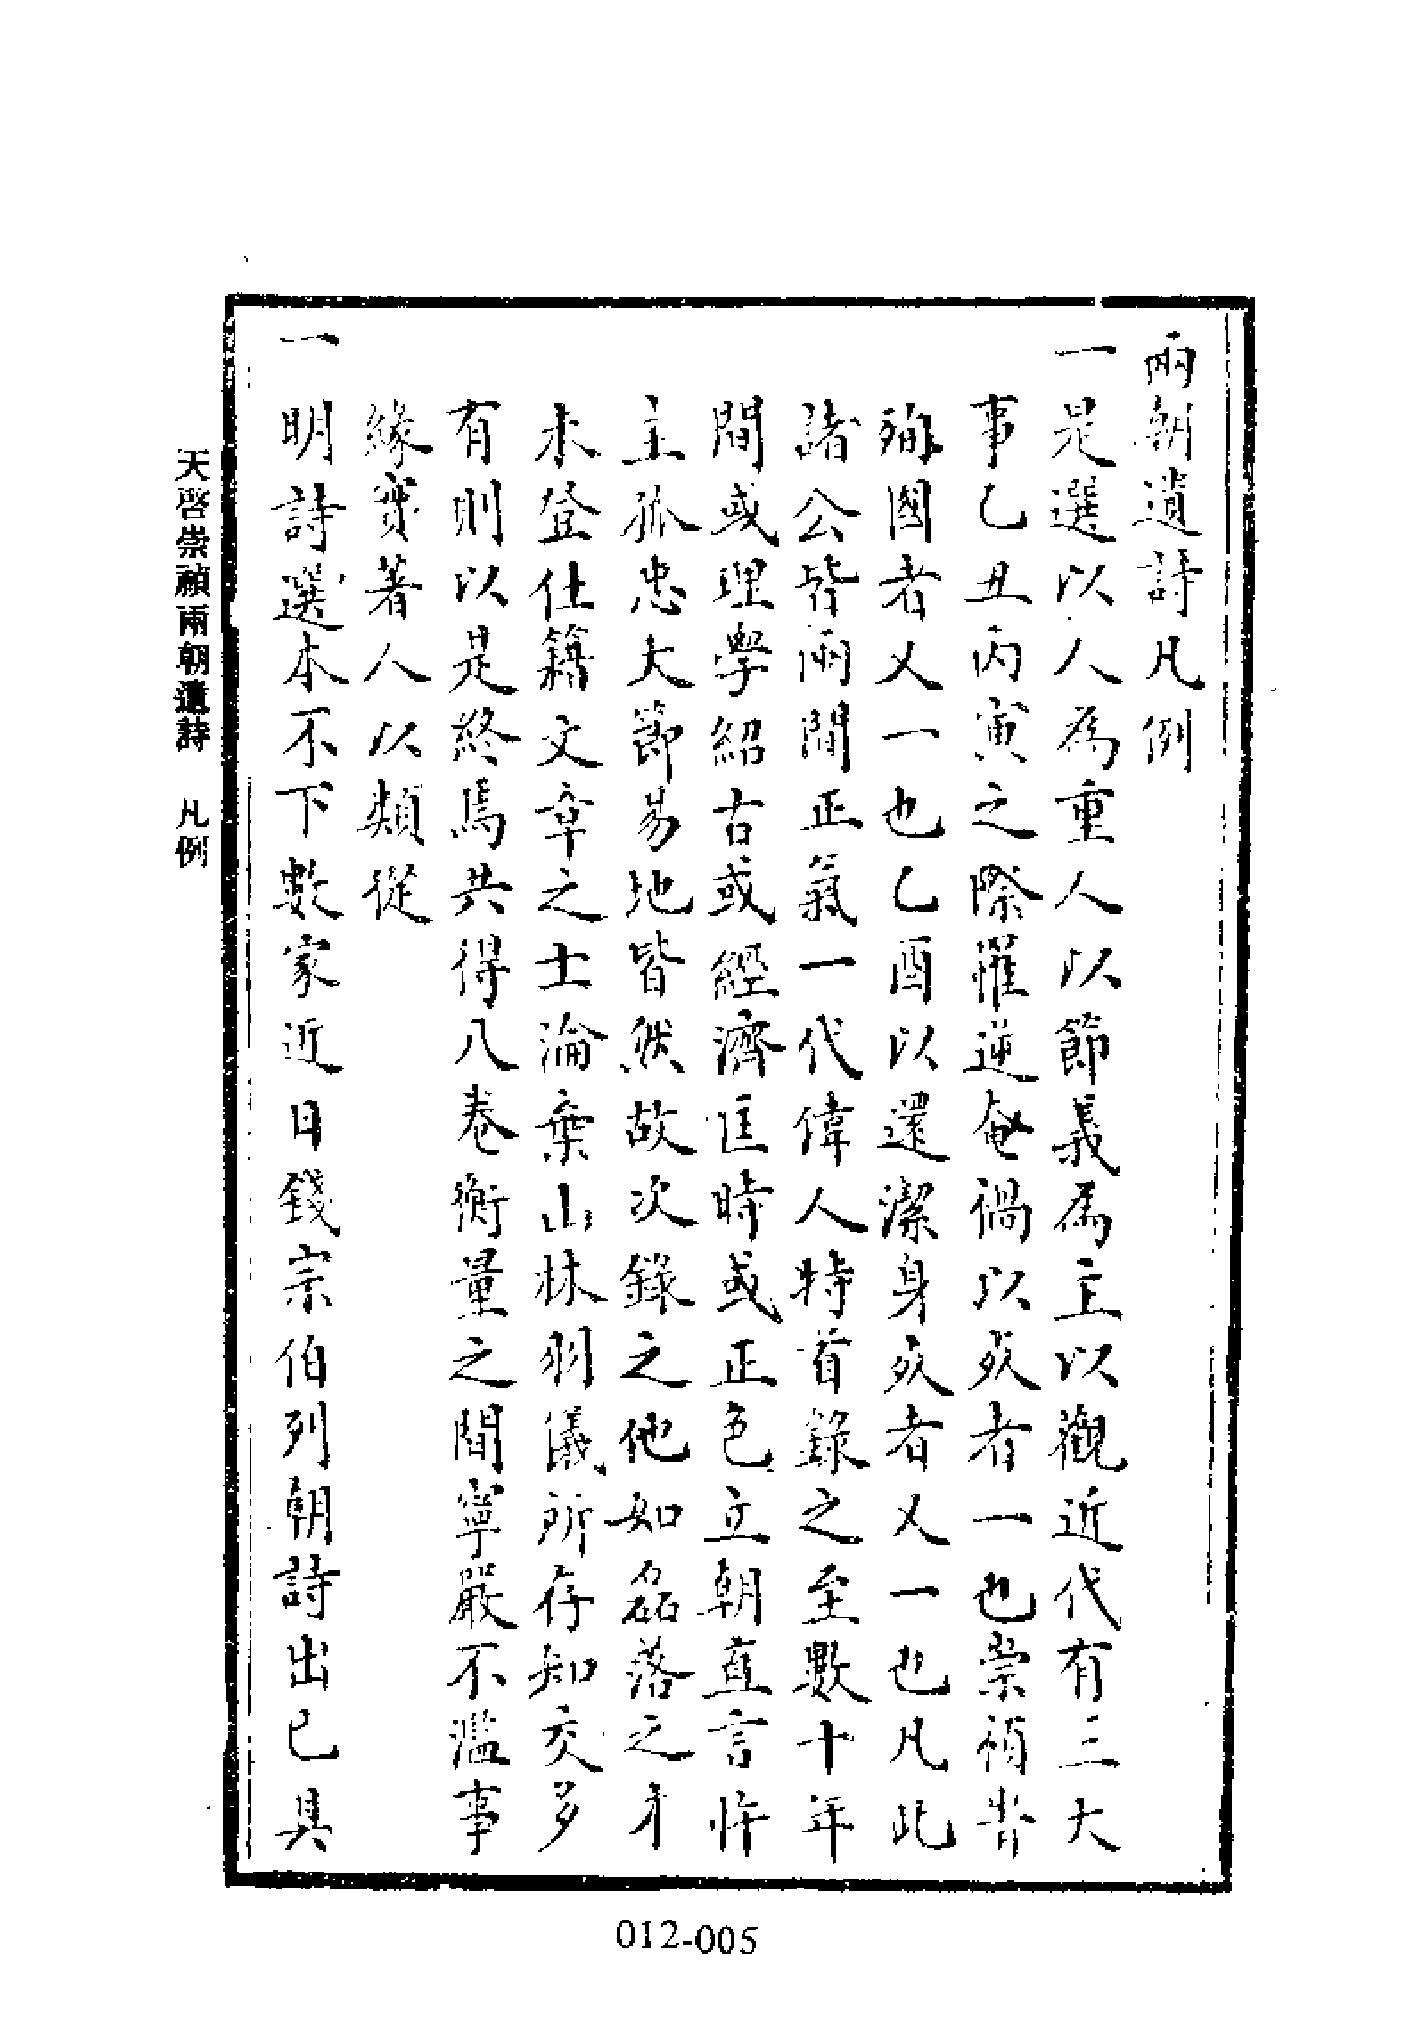 兩朝遺詩凡例
一是選以人為重人以節義為主以觀近代有三大
事乙丑丙寅之際罹逆奄禍以死者一也崇禎時
殉國者又一也乙酉以還潔身死者又一也凡此
諸公皆兩間正氣一代偉人特首錄之至數十年
間或理學紹古或經濟匡時或正色立朝直言忤
主孤忠大節易地皆然故次錄之他如磊落之才
未登仕籍文章之士淪棄山林羽儀所存知交多
有則以是終焉共得八卷衡量之間寧嚴不濫事
緣實著人以類從
一明詩選本不下數家近日錢宗伯列朝詩出已具
天啓崇禎兩朝遺詩 凡例
012-005